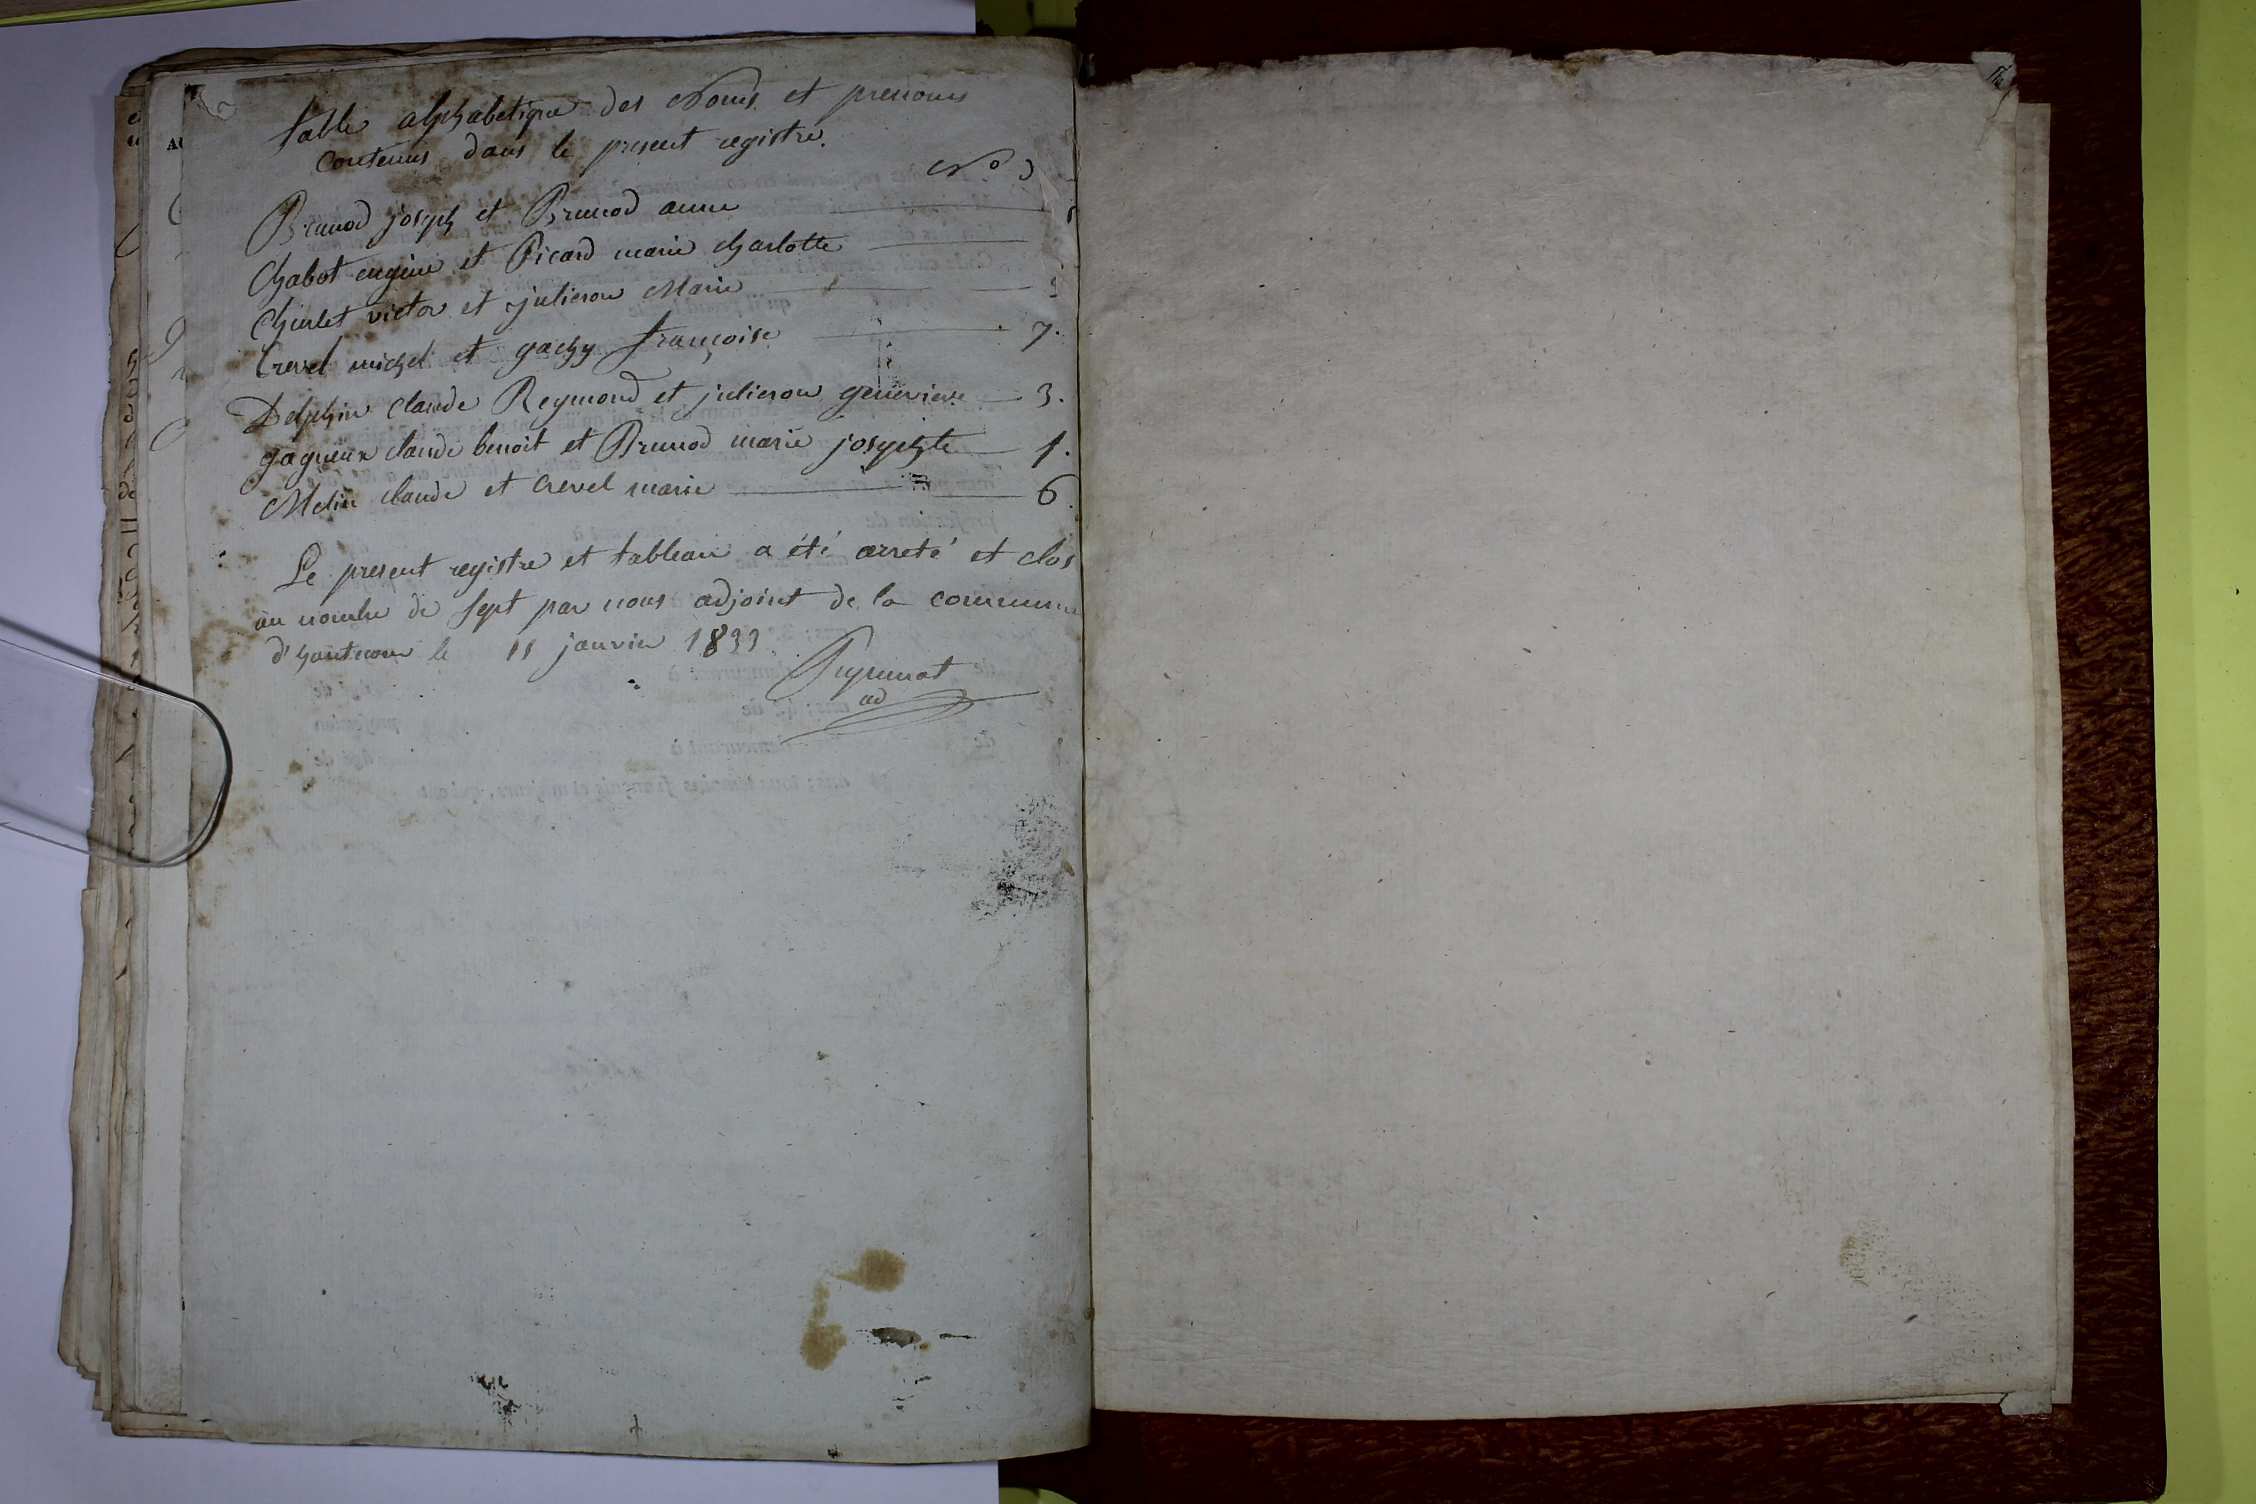 table alphabetique des Noms et prenoms
contenus dans le present registre.
No
Brunod joseph et Brunod anne
Chabot eugène et Picard marie charlotte
victor et julieron Marie
Crevel michel et gachy françoise 7.
Delphin claude Reymond et julieron genevieve 3.
gagneux claude benoit et Brunod marie josephte 1.
Melin claude et Crevel marie 6.
Le present registre et tableau a été arreté et clos
au nombre de sept par nous adjoint de la commune
d'hautecour le 11 janvier 1833
ad